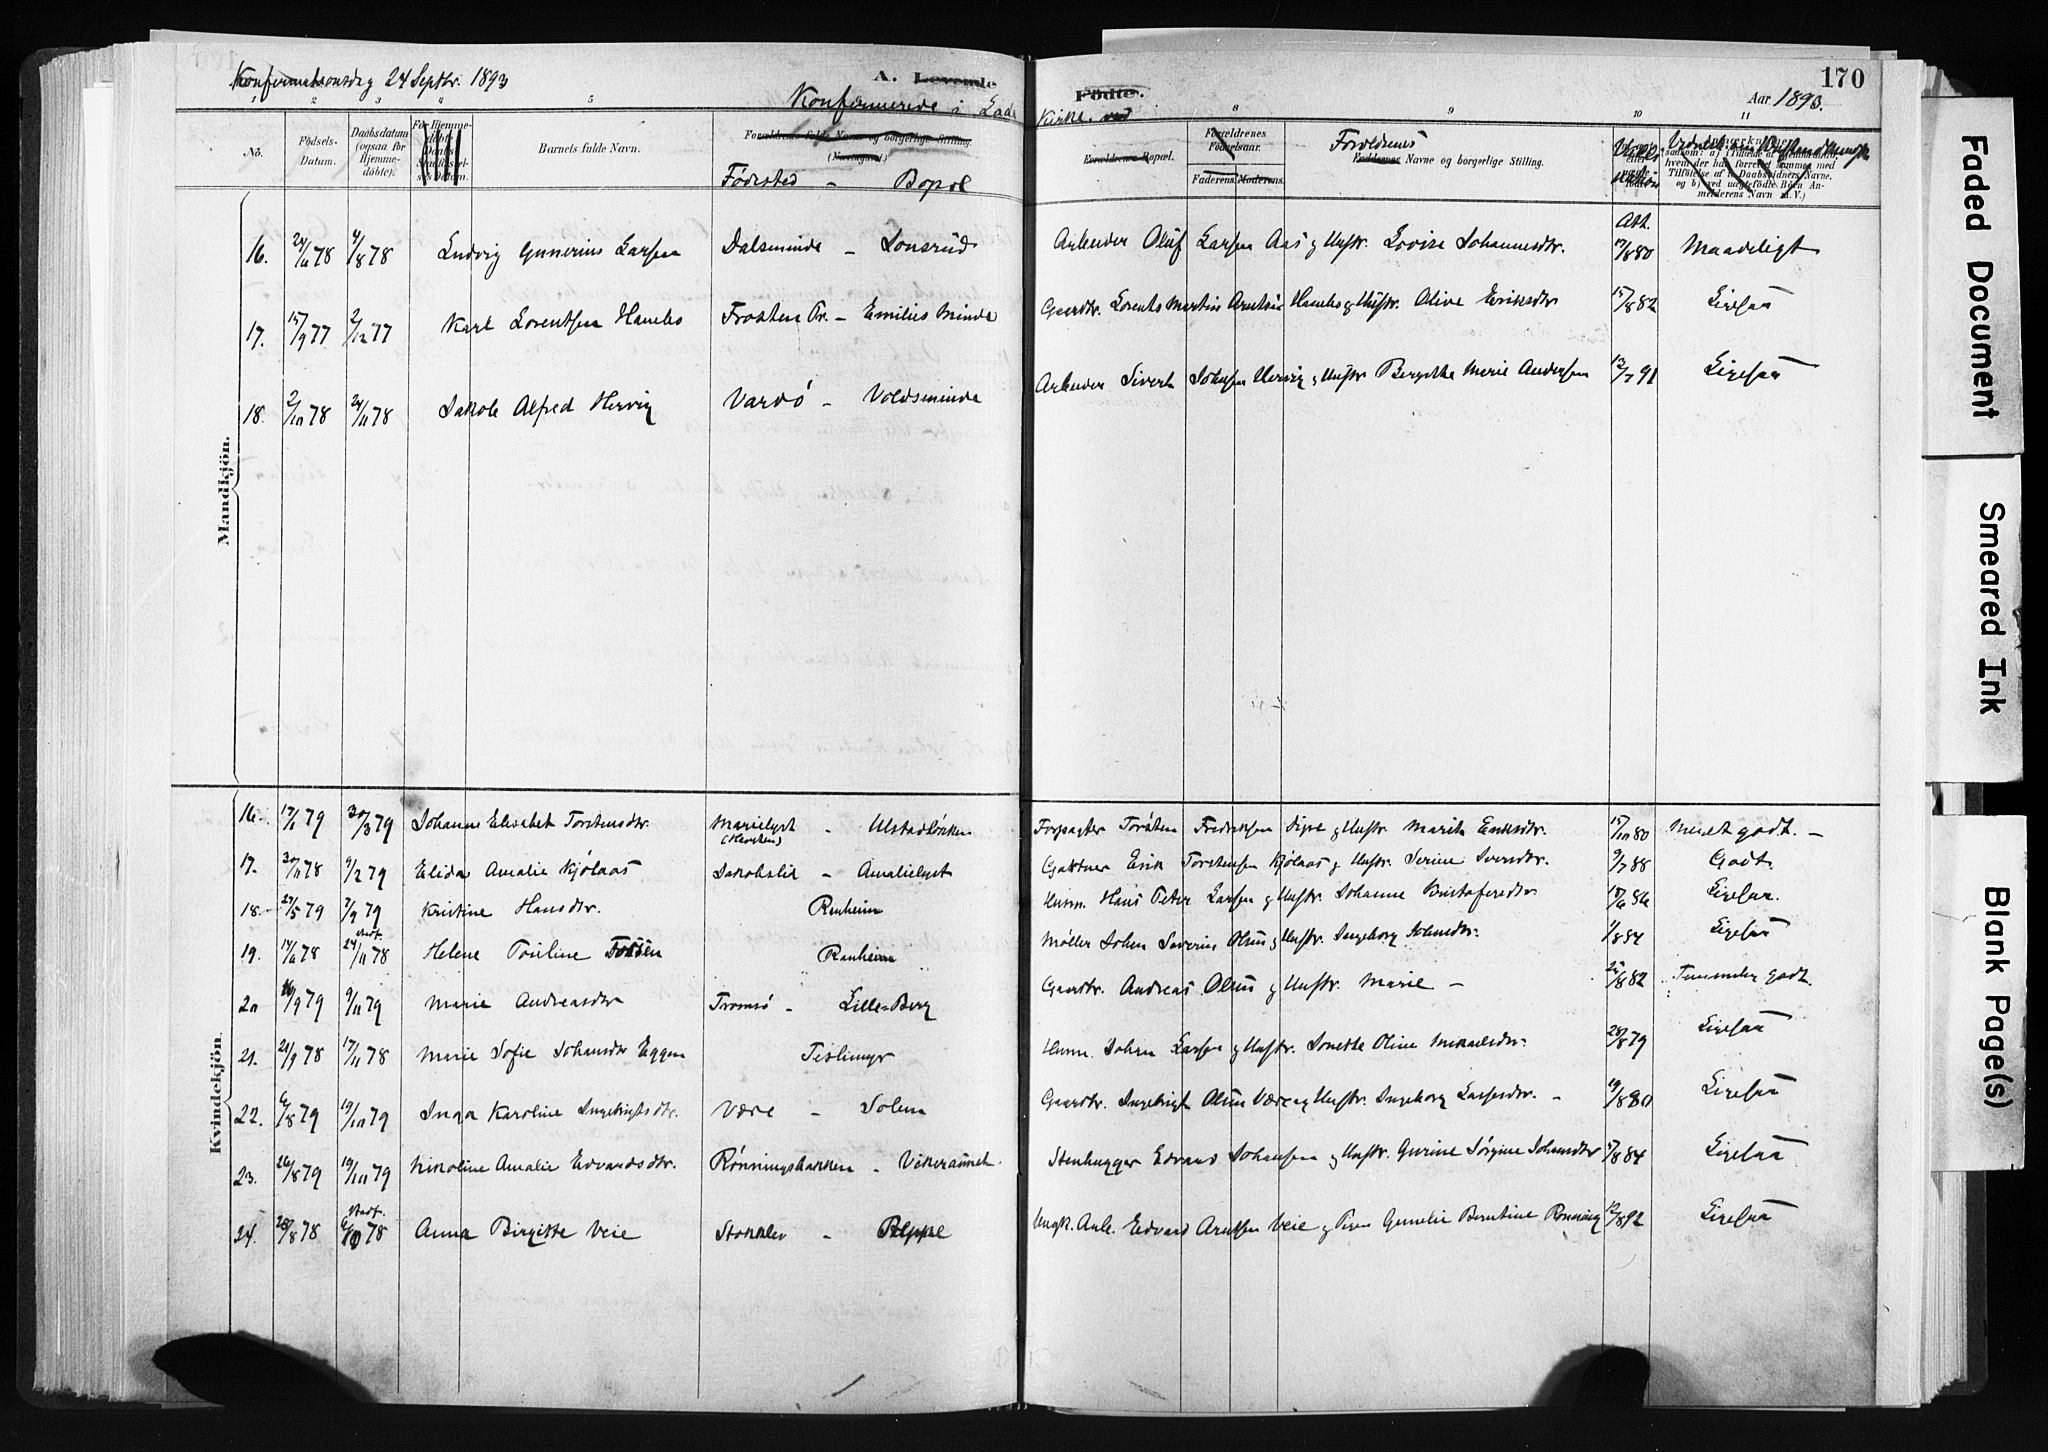 Konfirmationsdag 24 Septbr. 1893
A. Levende
Fødte.
170
Konfirmerede i Lade
Kirke
Aar 1893.
1 2 3 4 5 8 9 10 11
No.
Fødsels-Datum.
Daabsdatum (ogsaa for Hjemme-døbte).
Barnets fulde Navn.
Forældrenes fulde Navne og borgerlige Stilling.
Fødested - Bopæl
Forældrenes Bopæl.
Forældrenes Fødselsaar.
Faderens. Moderens.
Forældrenes
Faddernes Navne og borgerlige Stilling.
Att.
Mandkjön.
16. 24/6 78 4/8 78 Ludvig Gunerius Larsen Dalsminde - Lonsrud Arbeider Oluf Larsen Aas og Hustr. Lovise Johannesdtr. 17/8 80 Maadeligt
17. 15/9 77 2/12 77 Karl Lorentsen Hambo Frosten Pr. - Emilies Minde Gaardbr. Lorents Martin Arntsen Hambo og Hustr. Olive Eriksdtr 15/8 82 Ligesaa
18. 2/10 78 24/11 78 Jakob Alfred Hervig Vardö - Voldsminde Arbeider Sivert Johnsen Hervig og Hustr Bergitte Marie Andersen 13/7 91 Ligesaa
Kvindekjön.
16. 17/1 79 30/3 79 Johanne Elisabet Torstensdtr. Marielyst - Ulstadløkken Forpagter Torsten Fredriksen Digre og Hustr. Marit Eriksdtr. 15/10 80 Meget godt. -
17. 30/11 78 9/2 79 Elida Amalie Kjölaas Jakobsli - Amalielyst Gartner Erik Torstensen Kjölaas og Hustr. Serine Iversdtr. 9/7 88 Godt.
18. 27/5 79 7/9 79 Kristine Hansdtr. Ranheim Husm. Hans Peter Larsen og Hustr. Johanne Kristofersdtr 18/6 86 Ligesaa.
19. 14/6 78 24/11 78 Helene Pauline Fossen Ranheim Møller Johan Severin Olsen og Hustr. Ingeborg Johnsdtr. 1/8 84 Ligesaa
20 16/9 79 9/11 79 Marie Andreasdtr Tromsö - Lille-Berg Gaardbr. Andreas Olsen og Hustr. Marie - 25/8 82 Temmelig godt.
21. 21/9 78 17/11 78 Marie Sofie Johansdtr Eggen Teslimyr Husm. Johan Larsen og Hustr. Jonetta Oline Mikaelsdtr. 28/8 79 Ligesaa
22. 6/8 79 19/10 79 Inga Karoline Ingebrigtsdtr. Være - Solem Gaardbr. Ingebrigt Olsen Være og Hustr. Ingeborg Larsdtr. - 19/8 80 Ligesaa
23. 26/8 79 19/10 79 Nikoline Amalie Edvardsdtr. Rønningsbakken - Vikeraunet. Stenhugger Edvard Johansen og Hustr. Gurine Jørgine Johnsdtr 15/8 84 Ligesaa
24. 28/8 78 6/10 78 Anna Birgitte Veie Stokklev - Reppe Ungk. Arb. Edvard Arntsen Veie og Pige Gunelie Berntine Rønning 12/8 92 Ligesaa
Faded Document
Smeared Ink
Blank Page(s)